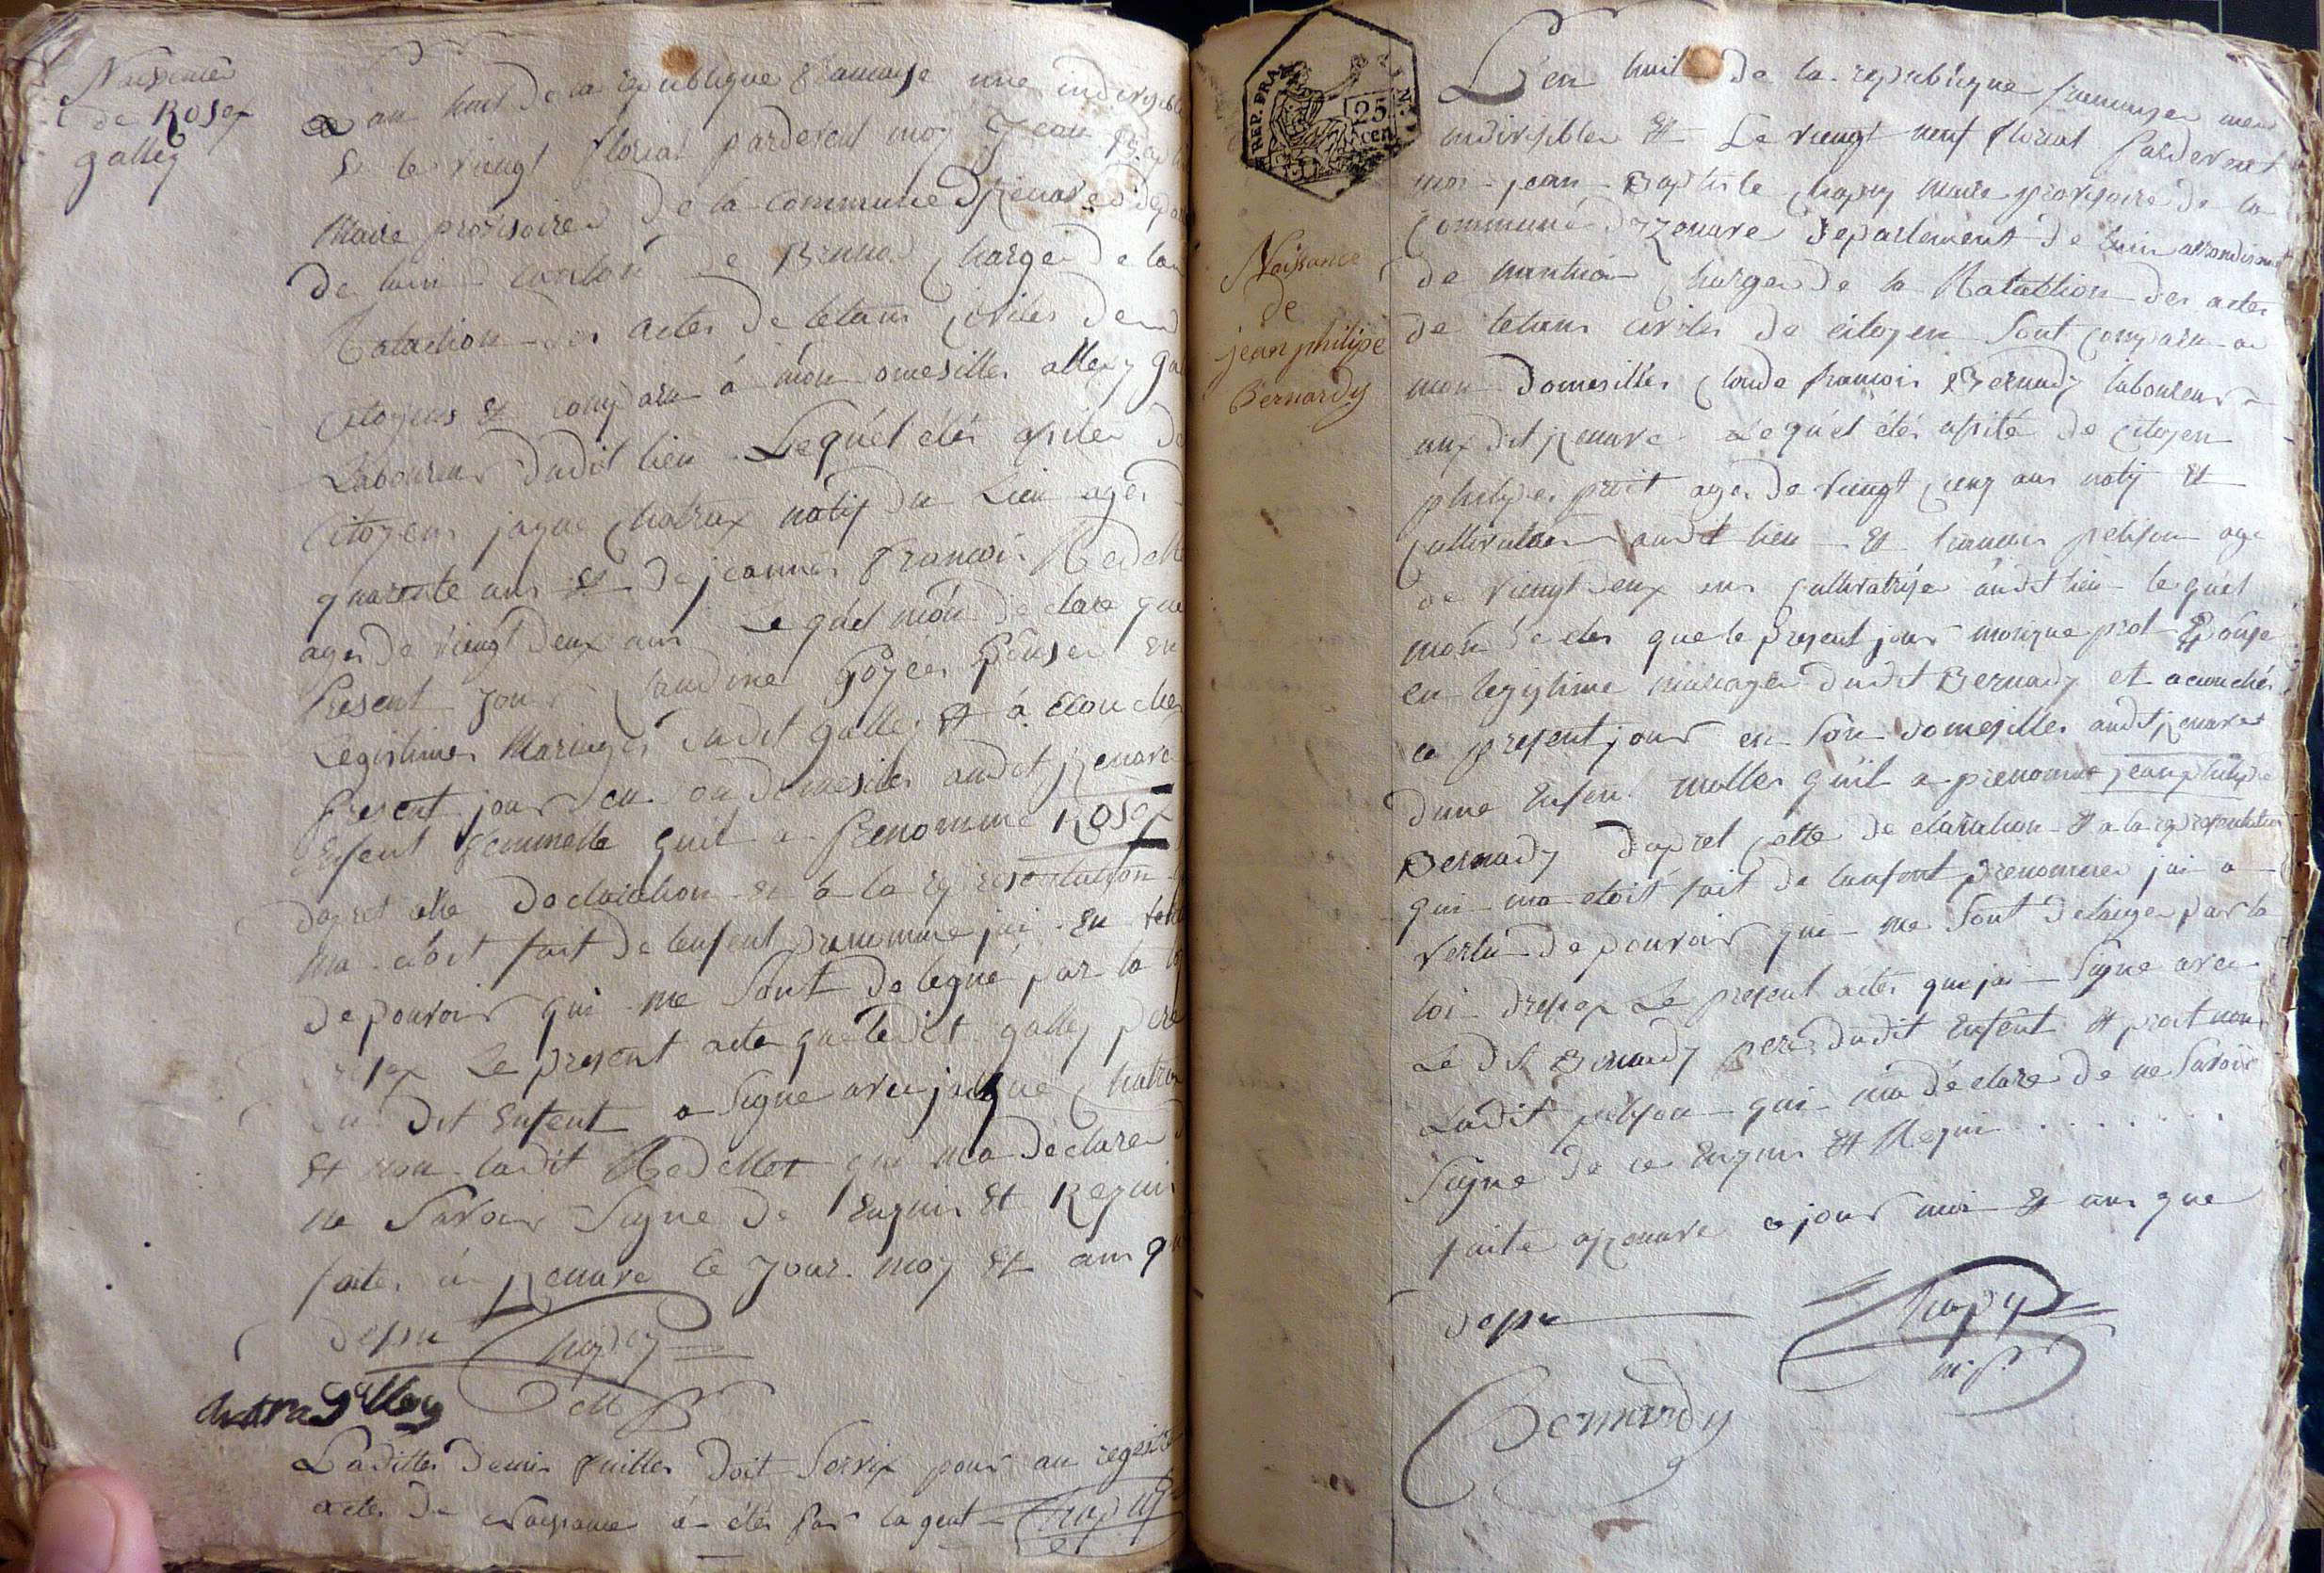 Naissance
de Rosex
galley
an huit De la republique francaise une indivisible
& le viengt florial pardevent moy Jean Bap
Maire provisoire De la commune Dizenave dep
De lain canton de Brenod Charger De la
Redaction des actes De letans civiles De
Citoyens Et comparu a mon omesilles allexy ga
Laboureur dudit lieu Lequel étés asistés De
Citoyens jaque Chatrax natif du Lieu ages
quarente ans Et De jeannes francois Redelle
ages De viengt Deux ans Lequel món Declare que
Present Jour Claudine Goyces Epouse En
Legistimes Mariages dudit galley Et á Coucher
Present jour en son Domesiles audit jzenave
Enfent femmelle quil a Prenomme Rosex
dapret cette Declaration Et a la represontation
ma etoit fait De lenfent prenomme jai En vertu
De pouvoir qui me Sont Delegué par la loy
Le present acte que ledit galley pere
du Dit Enfent a Signe avec jacque Chatrax
Et non ladit Redellet qui ma Declarer
ne Savoir Signe De Enquis Et Requis
faites á jzenave Le Jour moy Et ans que
depsu Chapuy
chatra galley
Laditte Demis fuilles Doit Servix pour au registre
actes De Naissance á étés par lagent Chapuy
REP. FRA.
25
cen
Len huit De la republique francaise une
indivisible Et Le viengt neuf florial Pardevent
moi jean Baptiste Chapuy Maire provisoire De la
Commune Dizenave Departement De lain arrondisment
De nantua Charger De la Redattion Des actes
De letans civiles De citoyen Sont comparu a
mon Domesilles Claude francois Bernady laboureur
aux dit jzenave Lequel étés asisté De Citoyen
philipes proit ages De viengt cinq ans natif Et
Cultivateur audit lieu Et francois pelisson age
de viengt Deux ans cultivatrise audit lieu lequel
món Declés que le Present jour monique prot Epouse
en legistime mariages dudit Bernady et acouchés
ce present jour en son Domesilles audit jzenave
Dune Enfent malles quil a prenommé jean philipe
Bernady Dapret cette Declaration Et a la representation
qui ma etoit fait De lanfent Prenommer jai a
vertu De pouvoir qui me Sont Deleguer par la
loi Dressex Le present actes que jai Signe avec
Le Dit Bernady pere dudit Enfent Et proit non
Ladit pelisson qui ma Déclare De ne Savoir
Signe De ce Enquis Et Requis . . . . . .
faite a jzenave ce jour moi Et ans que
Depsu Chapuy
Naissance
de
jean philipe
Bernardy
Bernardy